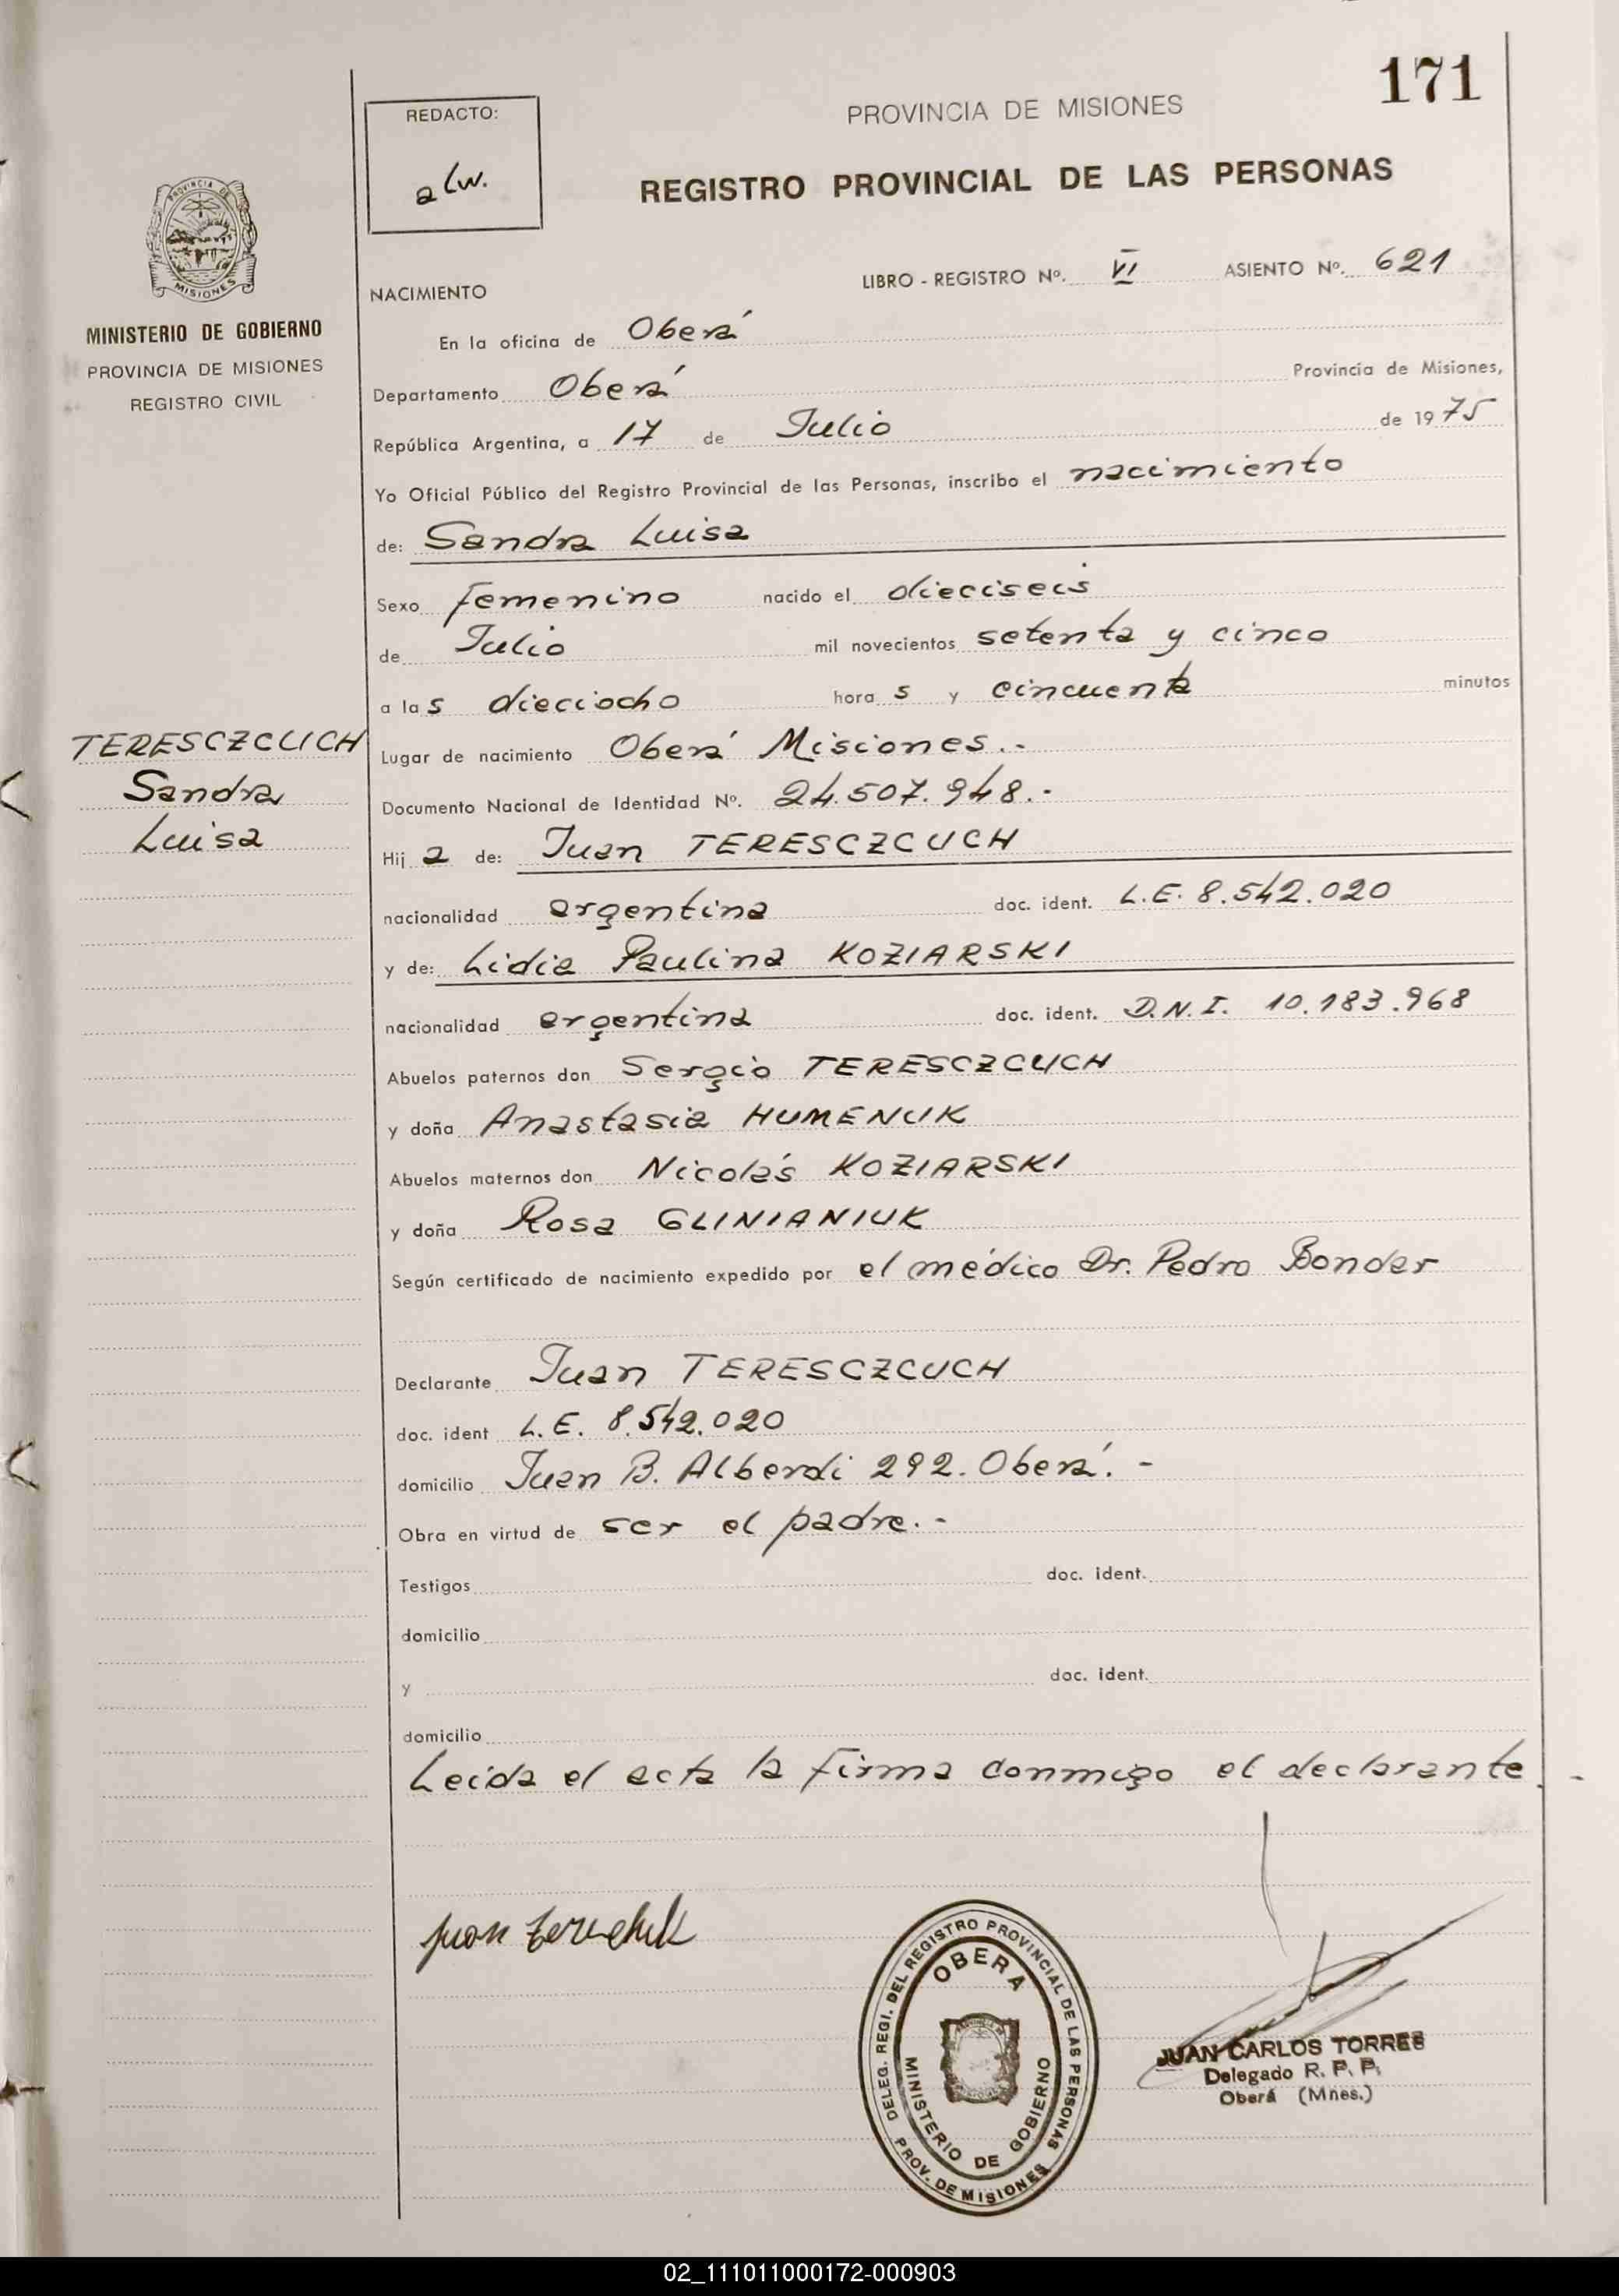 171
REDACTO:
alw.
PROVINCIA DE MISIONES
REGISTRO PROVINCIAL DE LAS PERSONAS
PROVINCIA DE
MISIONES
MINISTERIO DE GOBIERNO
PROVINCIA DE MISIONES
REGISTRO CIVIL
NACIMIENTO
LIBRO - REGISTRO Nº. VI ASIENTO Nº. 621
En la oficina de Oberá
Departamento Oberá Provincia de Misiones,
República Argentina, a 17 de Julio de 1975
Yo Oficial Público del Registro Provincial de las Personas, inscribo el nacimiento
de: Sandra Luisa
Sexo femenino nacido el dieciseis
de Julio mil novecientos setenta y cinco
a las dieciocho horas y cincuenta minutos
TERESCZCUCH
Sandra
Luisa
Lugar de nacimiento Oberá Misiones.-
Documento Nacional de Identidad Nº. 24.507.948.-
Hija de: Juan TERESCZCUCH
nacionalidad argentina doc. ident. L.E. 8.542.020
y de: Lidia Paulina KOZIARSKI
nacionalidad argentina doc. ident. D.N.I. 10.183.968
Abuelos paternos don Sergio TERESCZCUCH
y doña Anastasia HUMENUK
Abuelos maternos don Nicolás KOZIARSKI
y doña Rosa GLINIANIUK
Según certificado de nacimiento expedido por el médico Dr. Pedro Bondar
Declarante Juan TERESCZCUCH
doc. ident L.E. 8.542.020
domicilio Juan B. Alberdi 292. Oberá.-
Obra en virtud de ser el padre.-
Testigos doc. ident.
domicilio
y doc. ident.
domicilio
Leida el acta la firma conmigo el declarante.-
Juan
DELEG. REGI. DEL REGISTRO PROVINCIAL DE LAS PERSONAS
PROV. DE MISIONES
OBERA
MINISTERIO DE GOBIERNO
JUAN CARLOS TORRES
Delegado R. P. P.
Oberá (Mnes.)
02_111011000172-000903